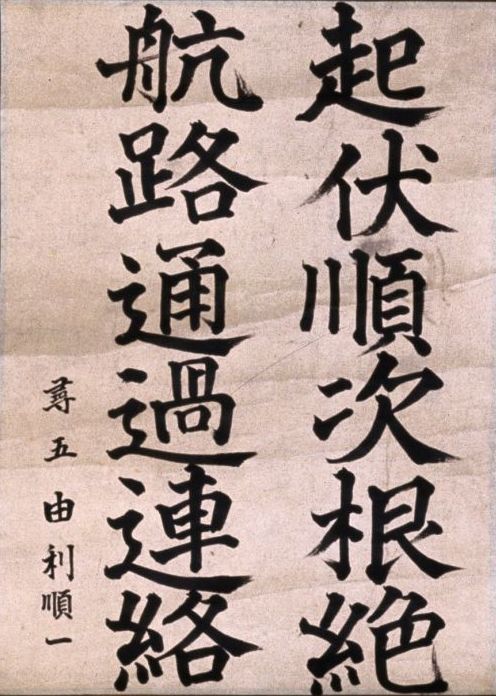 起伏順次根絶
航路通過連絡
尋五 由利順一